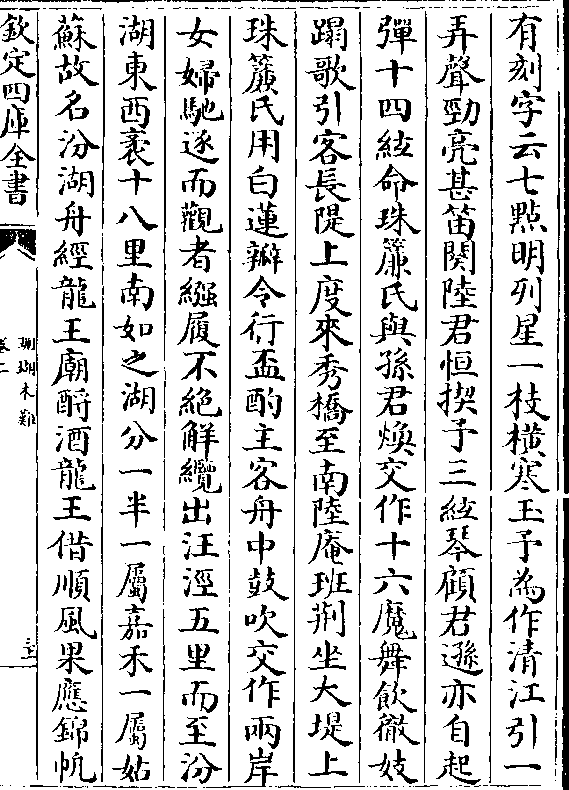 有刻字云七點明列星一枝橫寒玉予為作清江引一
弄聲勁亮甚笛闋陸君恒揳予三絃琴顧君遜亦自起
彈十四絃命珠簾氏與孫君煥交作十六魔舞飲徹妓
蹋歌引客長隄上度來秀橋至南陸庵班荆坐大堤上
珠簾氏用白蓮瓣令行盃酌主客舟中鼓吹交作兩岸
女婦馳逐而觀者繦履不絕解纜出汪涇五里而至汾
湖東西袤十八里南如之湖分一半一屬嘉禾一屬姑
蘇故名汾湖舟經龍王廟酹酒龍王借順風果應錦帆
欽定四庫全書
珊瑚木難
卷二